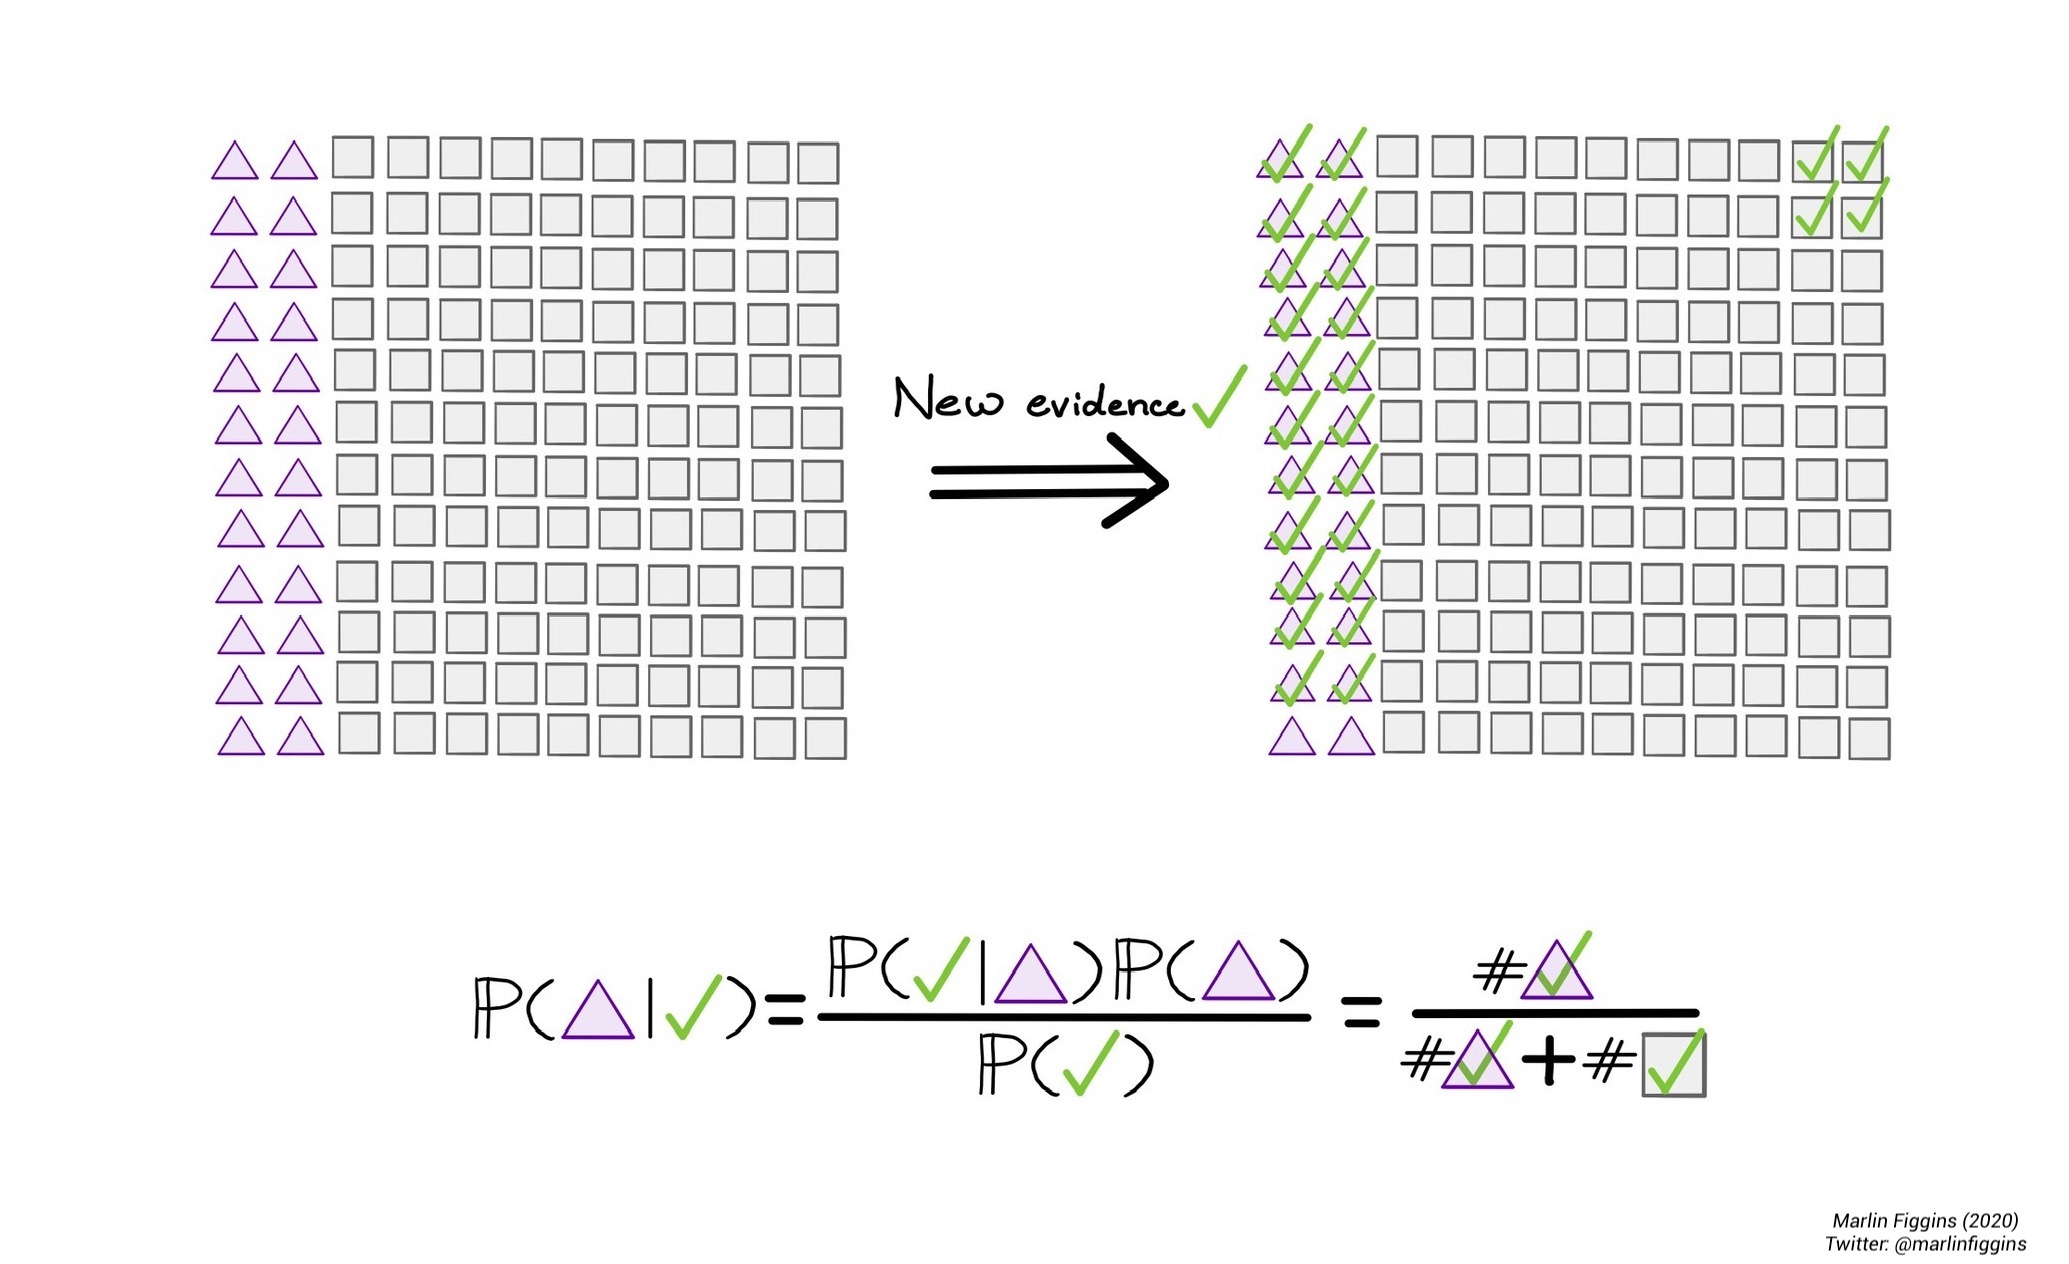 New evidence ✓
ℙ(△|✓) = ℙ(✓|△)ℙ(△) / ℙ(✓) = #△✓ / #△✓ + #□✓
Marlin Figgins (2020)
Twitter: @marlinfiggins